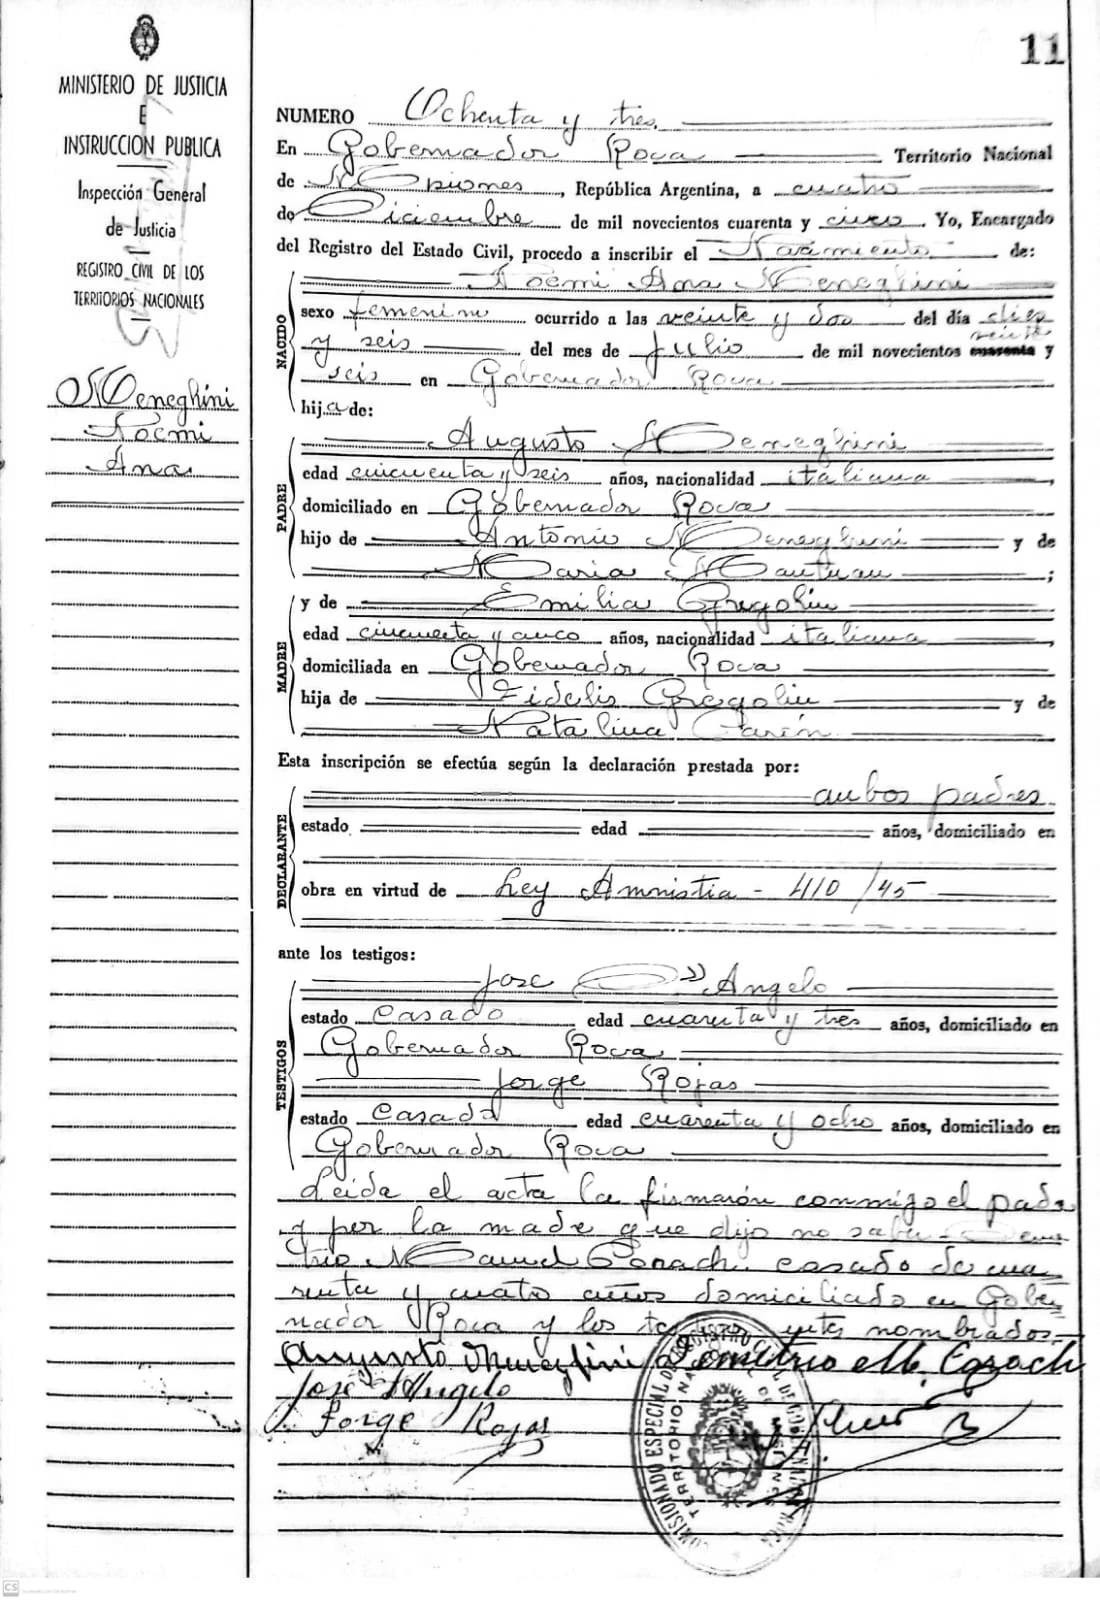 11
MINISTERIO DE JUSTICIA
E
INSTRUCCION PUBLICA
Inspección General
de Justicia
REGISTRO CIVIL DE LOS
TERRITORIOS NACIONALES
Meneghini
Noemi
Ana
NUMERO Ochenta y tres
En Gobernador Roca Territorio Nacional
de Misiones, República Argentina, a cuatro
de Diciembre de mil novecientos cuarenta y cinco Yo, Encargado
del Registro del Estado Civil, procedo a inscribir el Nacimiento de:
NACIDO
Noemi Ana Meneghini
sexo femenino ocurrido a las veinte y dos del día dies
y seis del mes de Julio de mil novecientos cuarenta veinte y
seis en Gobernador Roca
hija de:
PADRE
Augusto Meneghini
edad cincuenta y seis años, nacionalidad italiana,
domiciliado en Gobernador Roca
hijo de Antonio Meneghini y de
Maria Mantuan;
MADRE
y de Emilia Gregolin
edad cincuenta y cinco años, nacionalidad italiana,
domiciliada en Gobernador Roca
hija de Fidelis Gregolin y de
Natalina
Esta inscripción se efectúa según la declaración prestada por:
DECLARANTE
ambos padres
estado edad años, domiciliado en
obra en virtud de Ley Amnistia - 410/45
ante los testigos:
TESTIGOS
José D'Angelo
estado Casado edad cuarenta y tres años, domiciliado en
Gobernador Roca
Jorge Rojas
estado Casado edad cuarenta y ocho años, domiciliado en
Gobernador Roca
Leida el acta la firmarón conmigo el padre
y por la madre que dijo no saber - Deme
trio Manuel casado de cua
renta y cuatro años domiciliado en Gober
nador Roca y los nombrados.
Augusto Meneghini Demetrio M.
José D'Angelo
Jorge Rojas
COMISIONADO ESPECIAL DE REGISTRO CIVIL DE GOBERNADOR ROCA
TERRITORIO NACIONAL DE MISIONES
CS